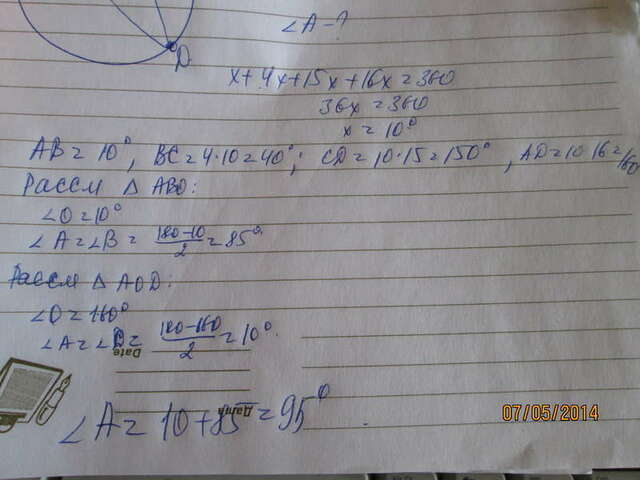 D
∠A-?
x+4x+15x+16x=360
36x=360
x=10°
AB=10°, BC=4·10=40°; CD=10·15=150°, AD=10·16=160
Рассм △ ABO:
∠O=10°
∠A=∠B= (180-10)/2 =85°
Рассм △ AOD:
∠O=160°
∠A=∠D= (180-160)/2 =10°.
Date
Дата
∠A=10+85=95°
07/05/2014